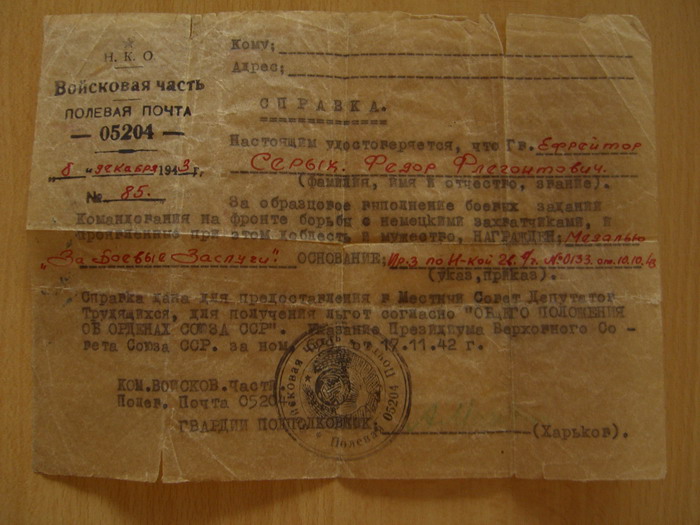 Н. К. О.
Войсковая часть
ПОЛЕВАЯ ПОЧТА
— 05204 —
"8" декабря 1943 г.
№ 85.
Кому:
Адрес:
СПРАВКА.
Настоящим удостоверяется, что Гв. Ефрейтор
Серык Федор Флегонтович.
(фамилия, имя и отчество, звание).
За образцовое выполнение боевых заданий
Командования на фронте борьбы с немецкими захватчиками, и
проявленные при этом доблесть и мужество, НАГРАЖДЕН: Медалью
"За Боевые Заслуги". ОСНОВАНИЕ: Пр-з по 26 №0133. от 10.10.43
(указ, приказ).
Справка дана для предоставления в Местный Совет Депутатов
Трудящихся, для получения льгот согласно "ОБЩЕГО ПОЛОЖЕНИЯ
ОБ ОРДЕНАХ СОЮЗА ССР". Указание Президиума Верховного Со-
вета Союза ССР. за ном. от 17.11.42 г.
КОМ. ВОЙСКОВ. Части
Полев. Почта 05204
ГВАРДИИ ПОДПОЛКОВНИК, (Харьков).
Войсковая часть Полевая Почта 05204